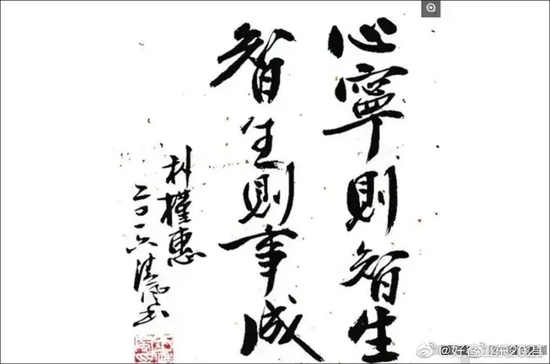 心寧則智生
智生則事成
朴槿惠
二〇一六